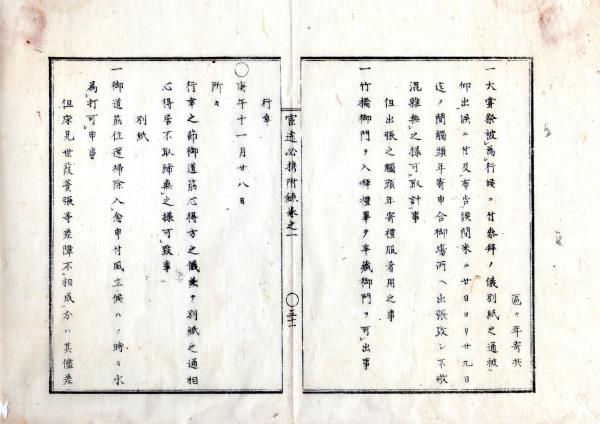 區々年寄共
一大嘗祭被為行候ニ付参拜ノ儀別紙之通被
仰出候ニ付及布告候間來ル廿日ヨリ廿九日
迄ノ間觸頭年寄申合御場所ヘ出張致シ不敬
混雜無之様可取計事
但出張之觸頭年寄禮服着用之事
一竹橋御門ヲ入拜禮畢ヲ半藏御門ヲ可出事
官途必携附錄卷之一
○五十二
行幸
○庚午十一月廿八日
所々
行幸之節御道筋心得方之儀兼ヲ別紙之通相
心得居不取締無之様可致事
別紙
一御道筋往還掃除入念申付風立候ハヽ時々水
為打可申事
但床見世葭簀張等差障不相成分ハ其儘差